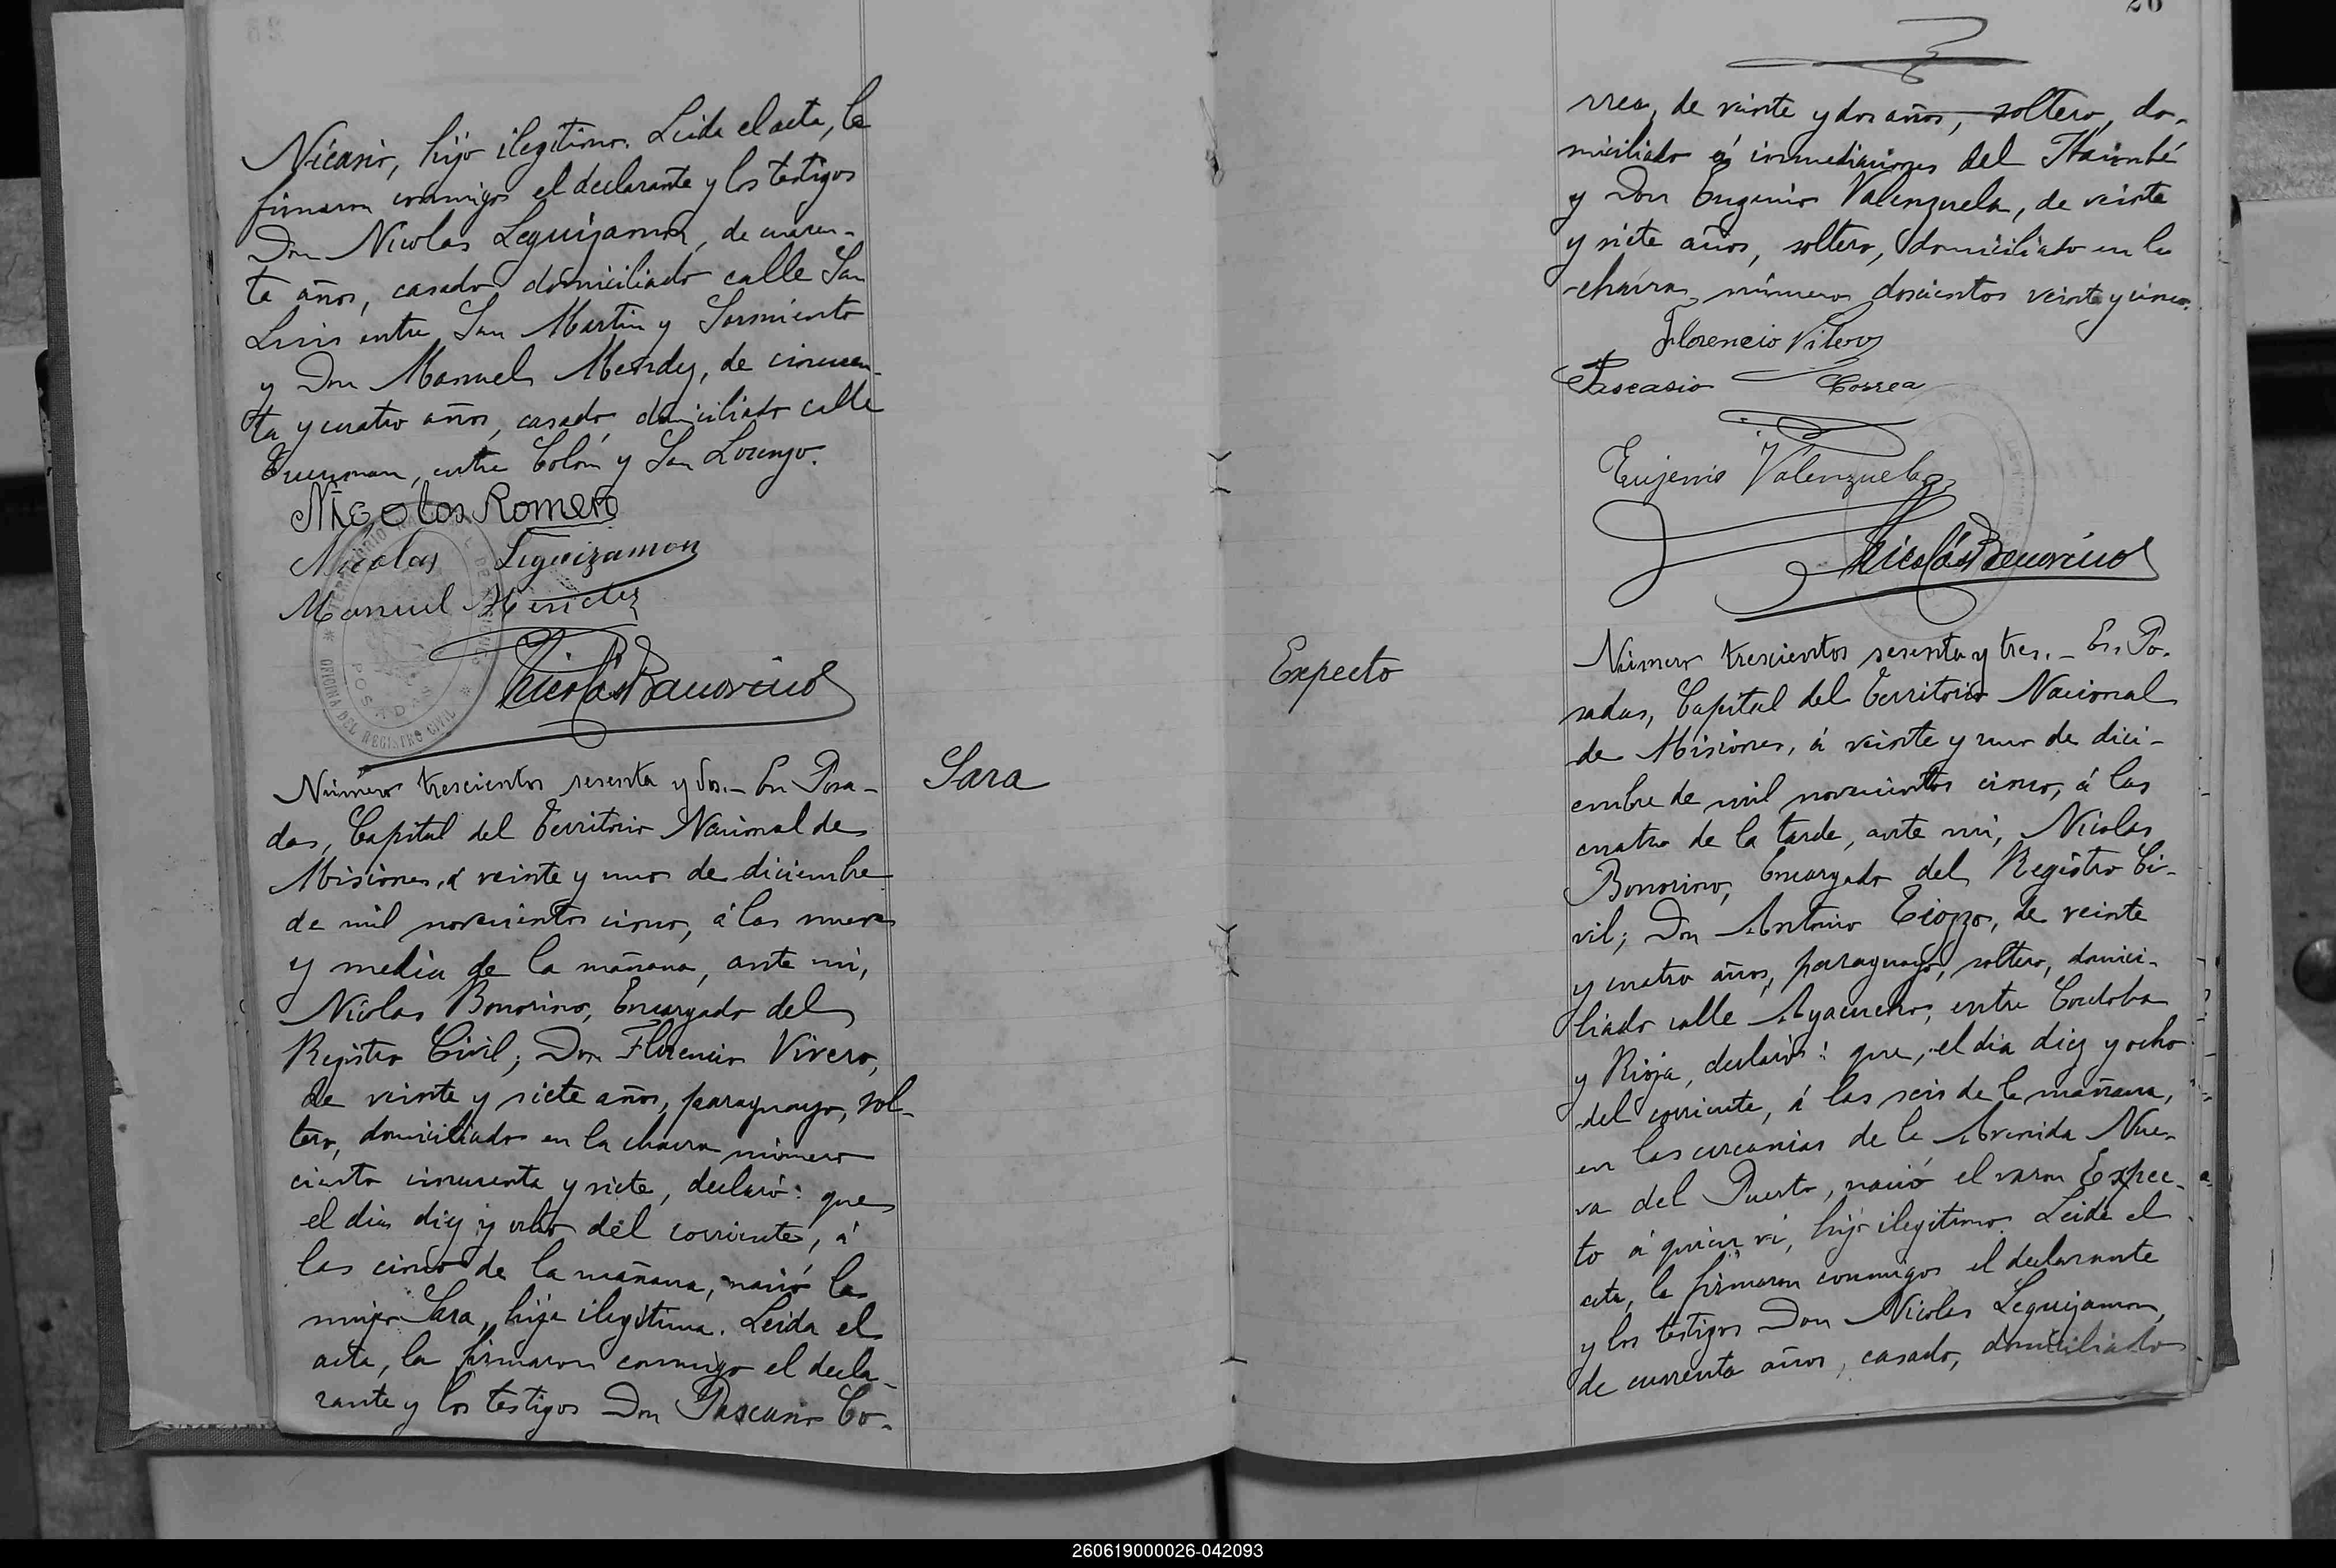 Nicasio, hijo ilegitimo. Leida el acta, la
firmaron conmigo el declarante y los testigos
Don Nicolas Leguizamon, de cuaren-
ta años, casado domiciliado calle San
Luis entre San Martin y Sarmiento
y Don Manuel Mendez, de cincuen-
ta y cuatro años, casado domiciliado calle
Tucuman, entre Colón y San Lorenzo.
Nicolas Romero
Nicolas Leguizamon
Manuel Mendez
Nicolás Bonorino
OFICINA DEL REGISTRO CIVIL
POSADAS
Número trescientos sesenta y dos.- En Posa-
das, Capital del Territorio Nacional de
Misiones, á veinte y uno de diciembre
de mil novecientos cinco, á las nueve
y media de la mañana, ante mi,
Nicolas Bonorino, Encargado del
Registro Civil; Don Florencio Vivero,
de veinte y siete años, paraguayo, sol-
tero, domiciliado en la chacra número
ciento cincuenta y siete, declaró: que
el dia diez y ocho del corriente, á
las cinco de la mañana, nació la
mujer Sara, hija ilegitima. Leida el
acta, la firmaron conmigo el decla-
rante y los testigos Don Pascasio Co-
Sara
26
rrea, de veinte y dos años, soltero, do-
miciliado á inmediaciones del
y Don Eugenio Valenzuela, de veinte
y siete años, soltero, domiciliado en la
chacra número doscientos veinte y cinco.
Florencio
Pascasio Correa
Eujenio Valenzuela
Nicolás Bonorino
Expecto
Número trescientos sesenta y tres.- En Po-
sadas, Capital del Territorio Nacional
de Misiones, á veinte y uno de dici-
embre de mil novecientos cinco, á las
cuatro de la tarde, ante mi, Nicolas
Bonorino, Encargado del Registro Ci-
vil; Don Antonio Tiozzo, de veinte
y cuatro años, paraguayo, soltero, domici-
liado calle Ayacucho, entre Cordoba
y Rioja, declaró: que, el dia diez y ocho
del corriente, á las seis de la mañana,
en las cercanias de la Avenida Nue-
va del Puerto, nació el varon Expec-
to á quien vi, hijo ilegitimo. Leida el
acta, la firmaron conmigo el declarante
y los testigos Don Nicolas Leguizamon,
de cuarenta años, casado, domiciliado
260619000026-042093